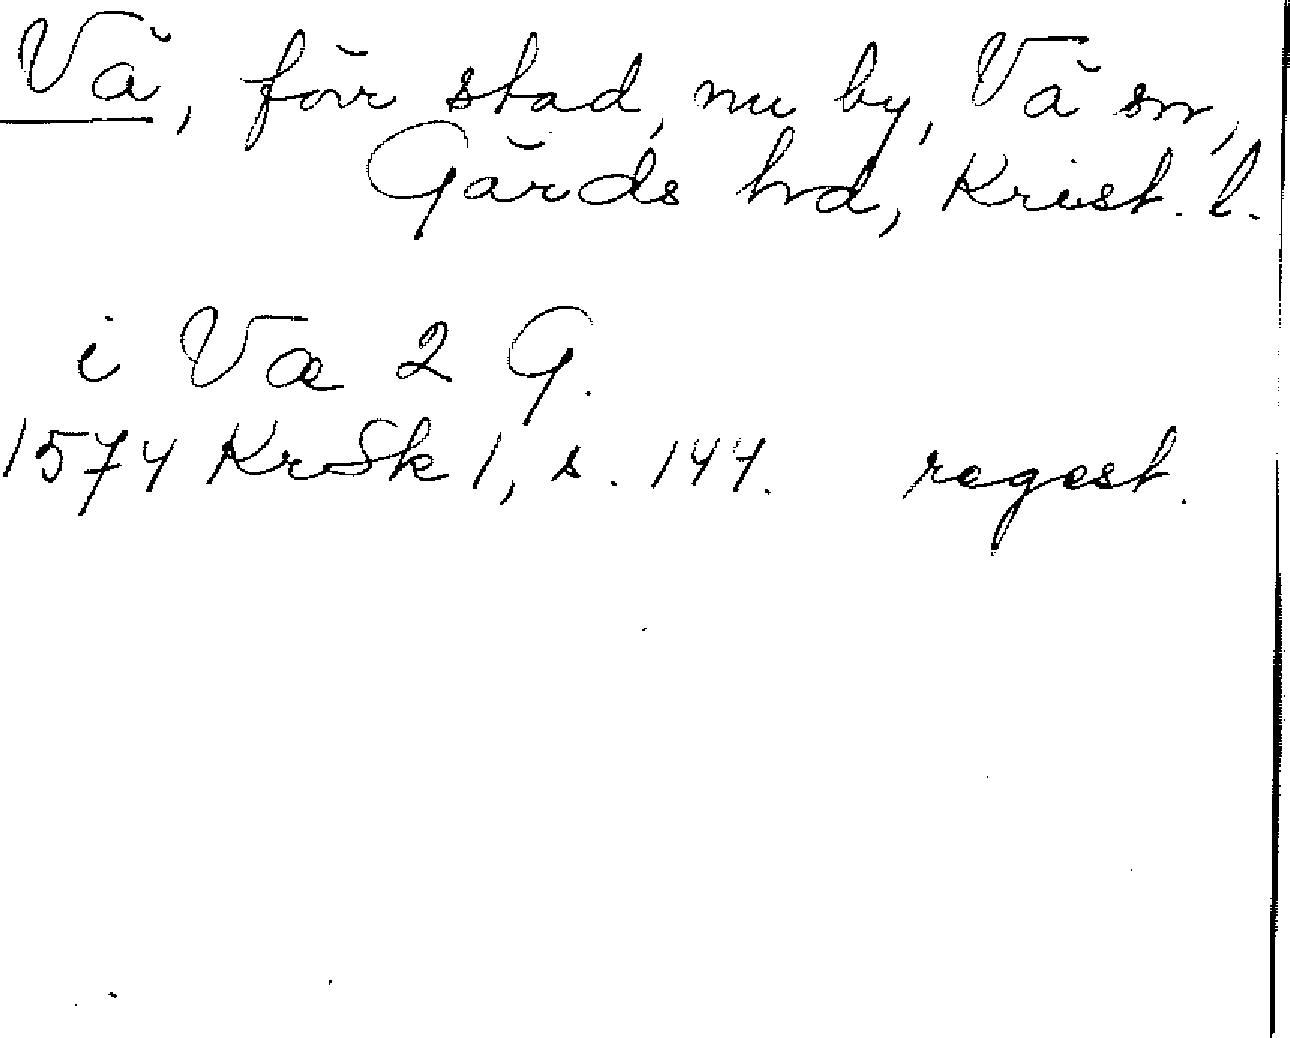 Vä, förr stad, nu by, Vä sn,
Gärds hd, Krist. l.
i Væ 2 G.
1574 KrSk 1, s. 144. regest.